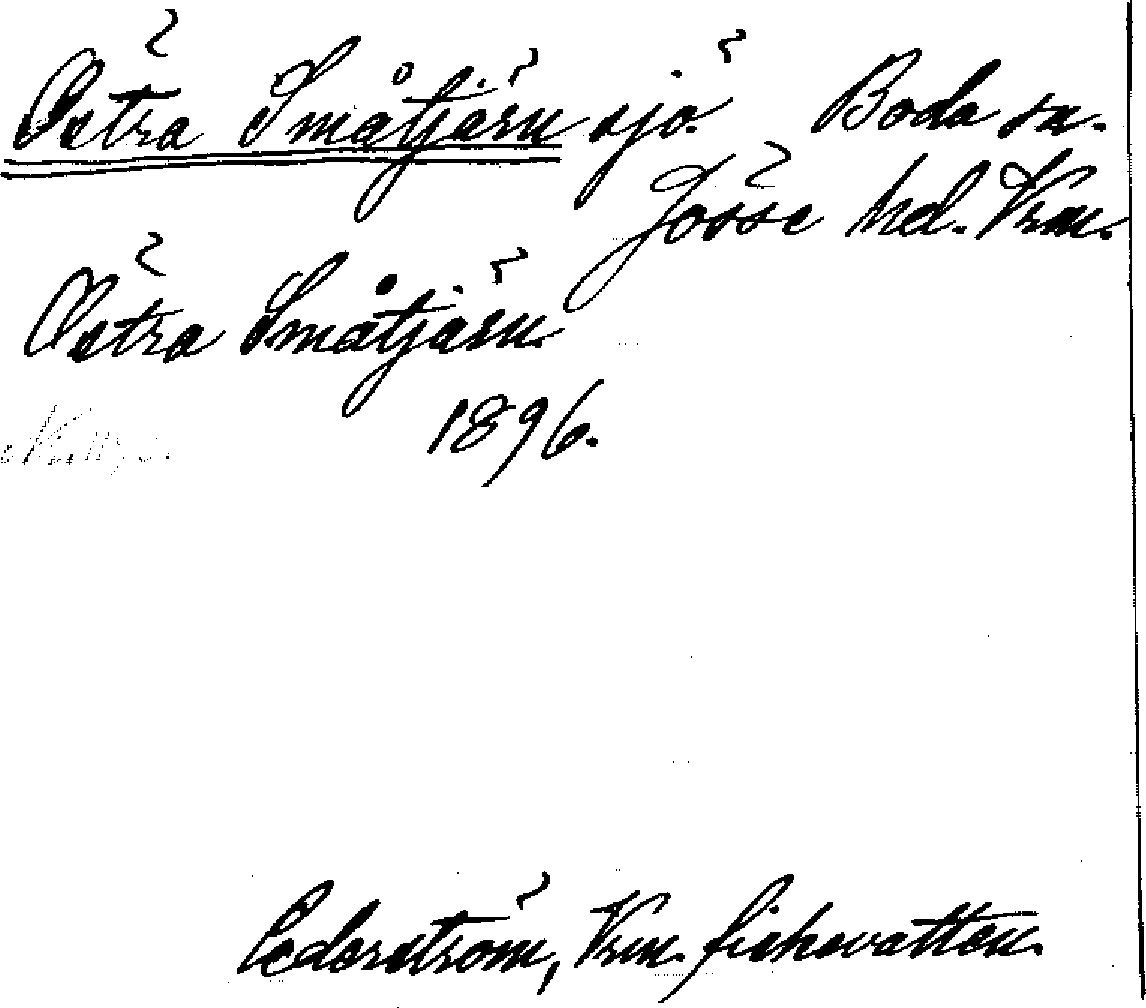 Östra Småtjärn sjö. Boda sn.
Jösse hd. Vrm.
Östra Småtjärn.
1896.
Cederström, Vrm. fiskevatten.